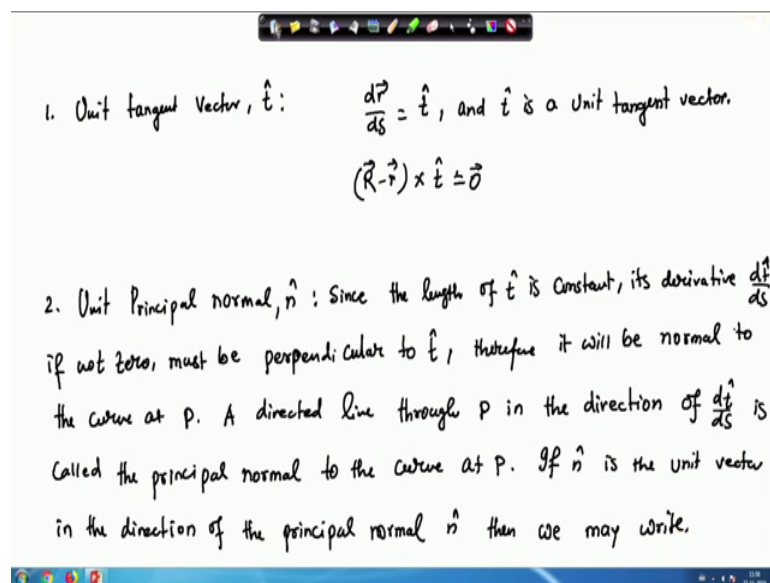 1. Unit tangent Vector, t̂ : dr⃗/ds = t̂, and t̂ is a Unit tangent vector.
(R⃗-r⃗) × t̂ = 0⃗
2. Unit Principal normal, n̂ : Since the length of t̂ is constant, its derivative dt̂/ds
if not zero, must be perpendicular to t̂, therefore it will be normal to
the curve at P. A directed line through P in the direction of dt̂/ds is
called the principal normal to the curve at P. If n̂ is the unit vector
in the direction of the principal normal n̂ then we may write.